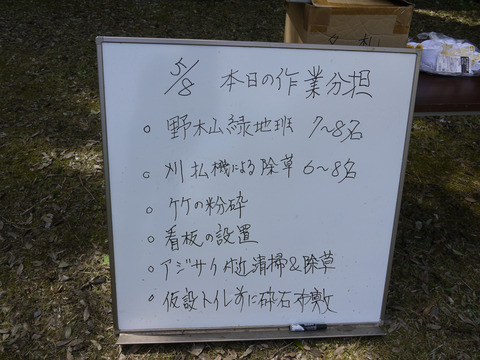 5/8 本日の作業分担
○ 野木山緑地班 7~8名
○ 刈払機による除草 6~8名
○ ケケの粉砕
○ 看板の設置
○ アジサイ付近清掃&除草
○ 仮設トイレ前に砕石 敷
名札